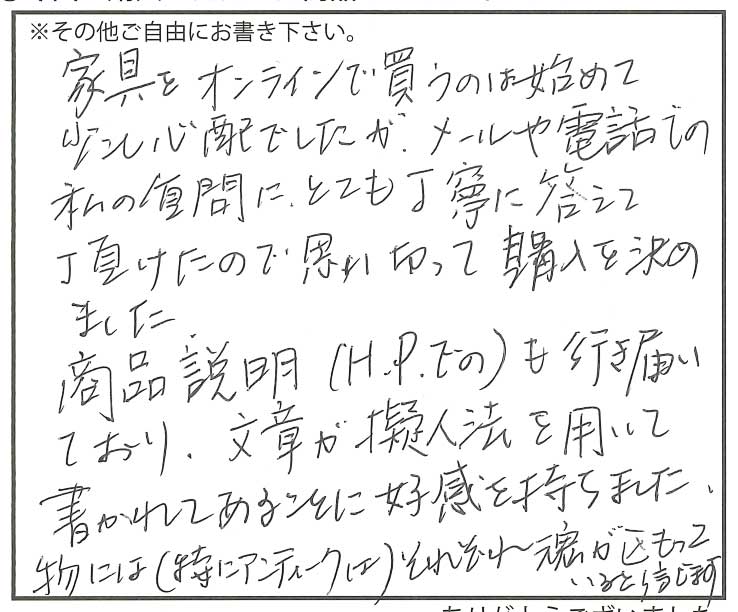 ※その他ご自由にお書き下さい。
家具をオンラインで買うのは始めて
少し心配でしたが、メールや電話での
私の質問に、とても丁寧に答えて
頂けたので思い切って購入を決め
ました。
商品説明(H.P.での)も行き届い
ており、文章が擬人法を用いて
書かれてあることに好感を持ちました。
物には(特にアンティークは)それぞれ魂が込もって
いると信じます
ありがとうございました